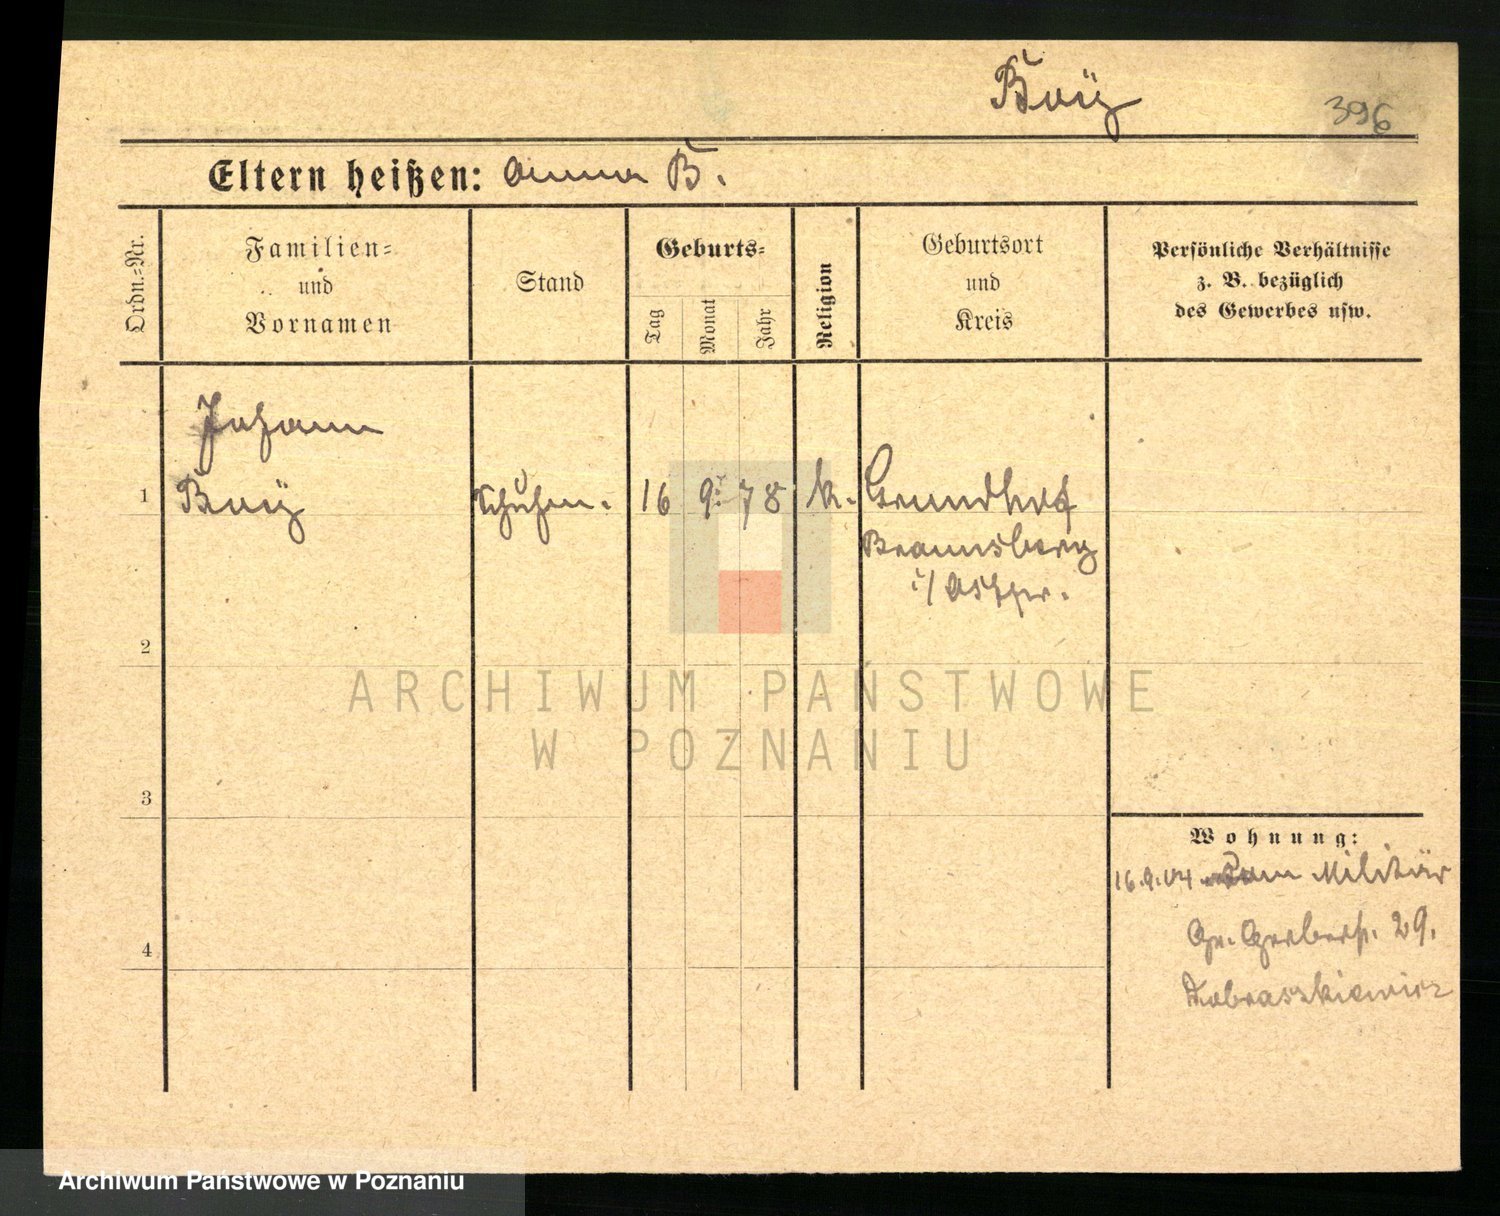 Boÿ
396
Eltern heißen: Anna B.
Ordn.-Nr.
Familien-
und
Vornamen
Stand
Geburts-
Tag
Monat
Jahr
Religion
Geburtsort
und
Kreis
Persönliche Verhältnisse
z. B. bezüglich
des Gewerbes usw.
Johann
1 Boÿ Schuhm. 16 9. 78 k. Grundhof
Braunsberg
i/Ostpr.
2
3
4
Wohnung:
16.9.04 zum Militär
Gr. Gerberst. 29.
Dobraszkiewicz
ARCHIWUM PAŃSTWOWE
W POZNANIU
Archiwum Państwowe w Poznaniu